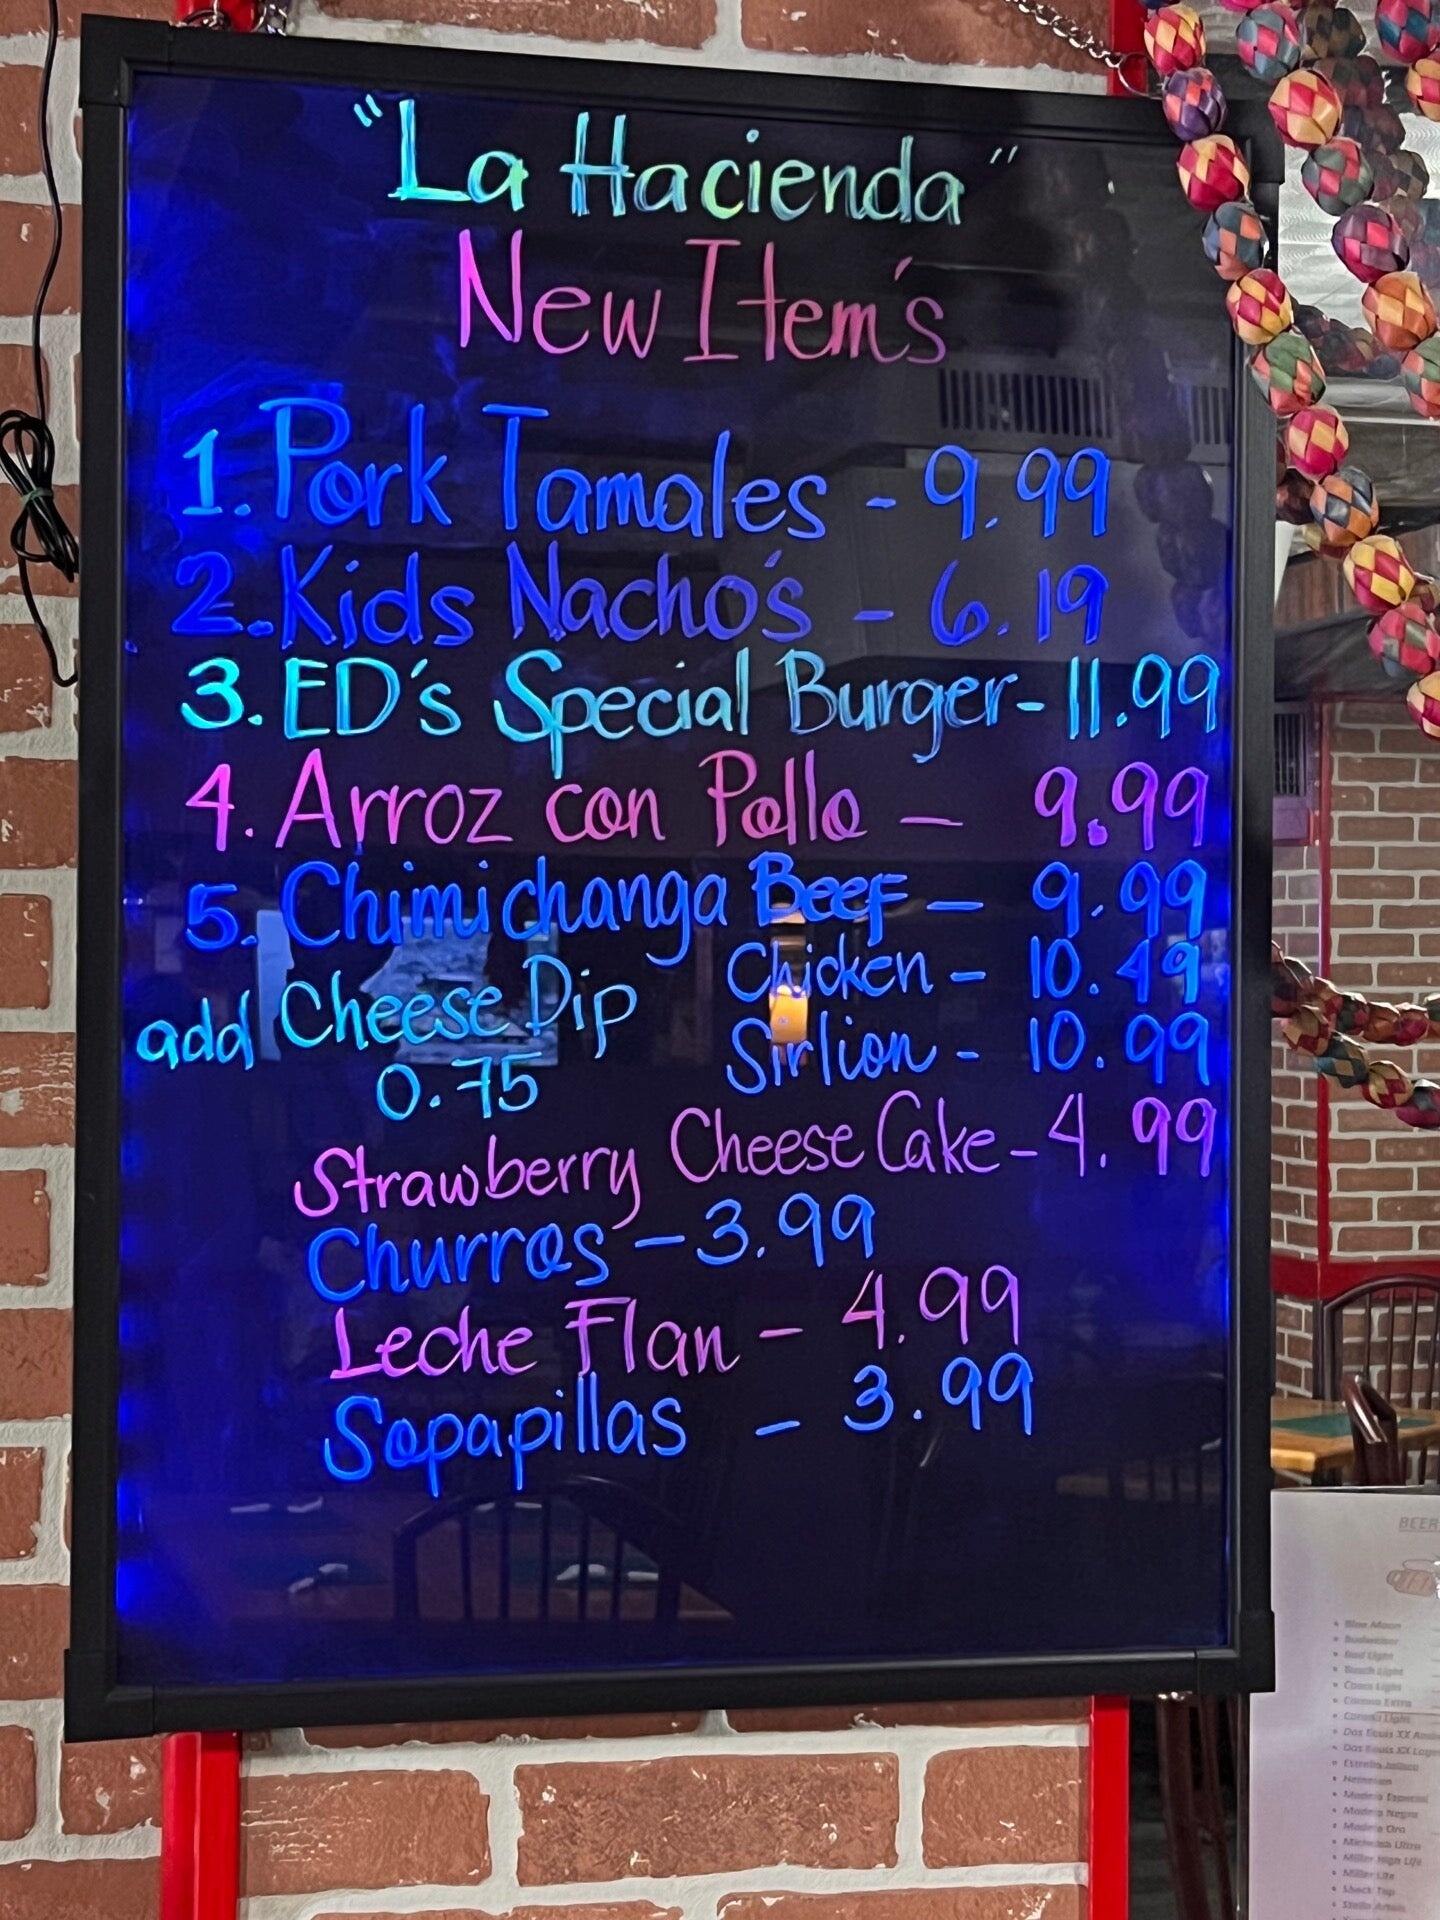 "La Hacienda"
New Item's
1. Pork Tamales - 9.99
2. Kids Nacho's - 6.19
3. ED's Special Burger - 11.99
4. Arroz con Pollo - 9.99
5. Chimichanga Beef - 9.99
Chicken - 10.49
add Cheese Dip
0.75
Sirlion - 10.99
Strawberry Cheese Cake - 4.99
Churros - 3.99
Leche Flan - 4.99
Sopapillas - 3.99
BEER
Blue Moon
Budweiser
Bud Light
Busch Light
Coors Light
Corona Extra
Corona Light
Dos Equis XX
Dos Equis XX
Estrella Jalisco
Heineken
Modelo Especial
Modelo Negra
Modelo Oro
Michelob Ultra
Miller High Life
Miller Lite
Shock Top
Stella Artois